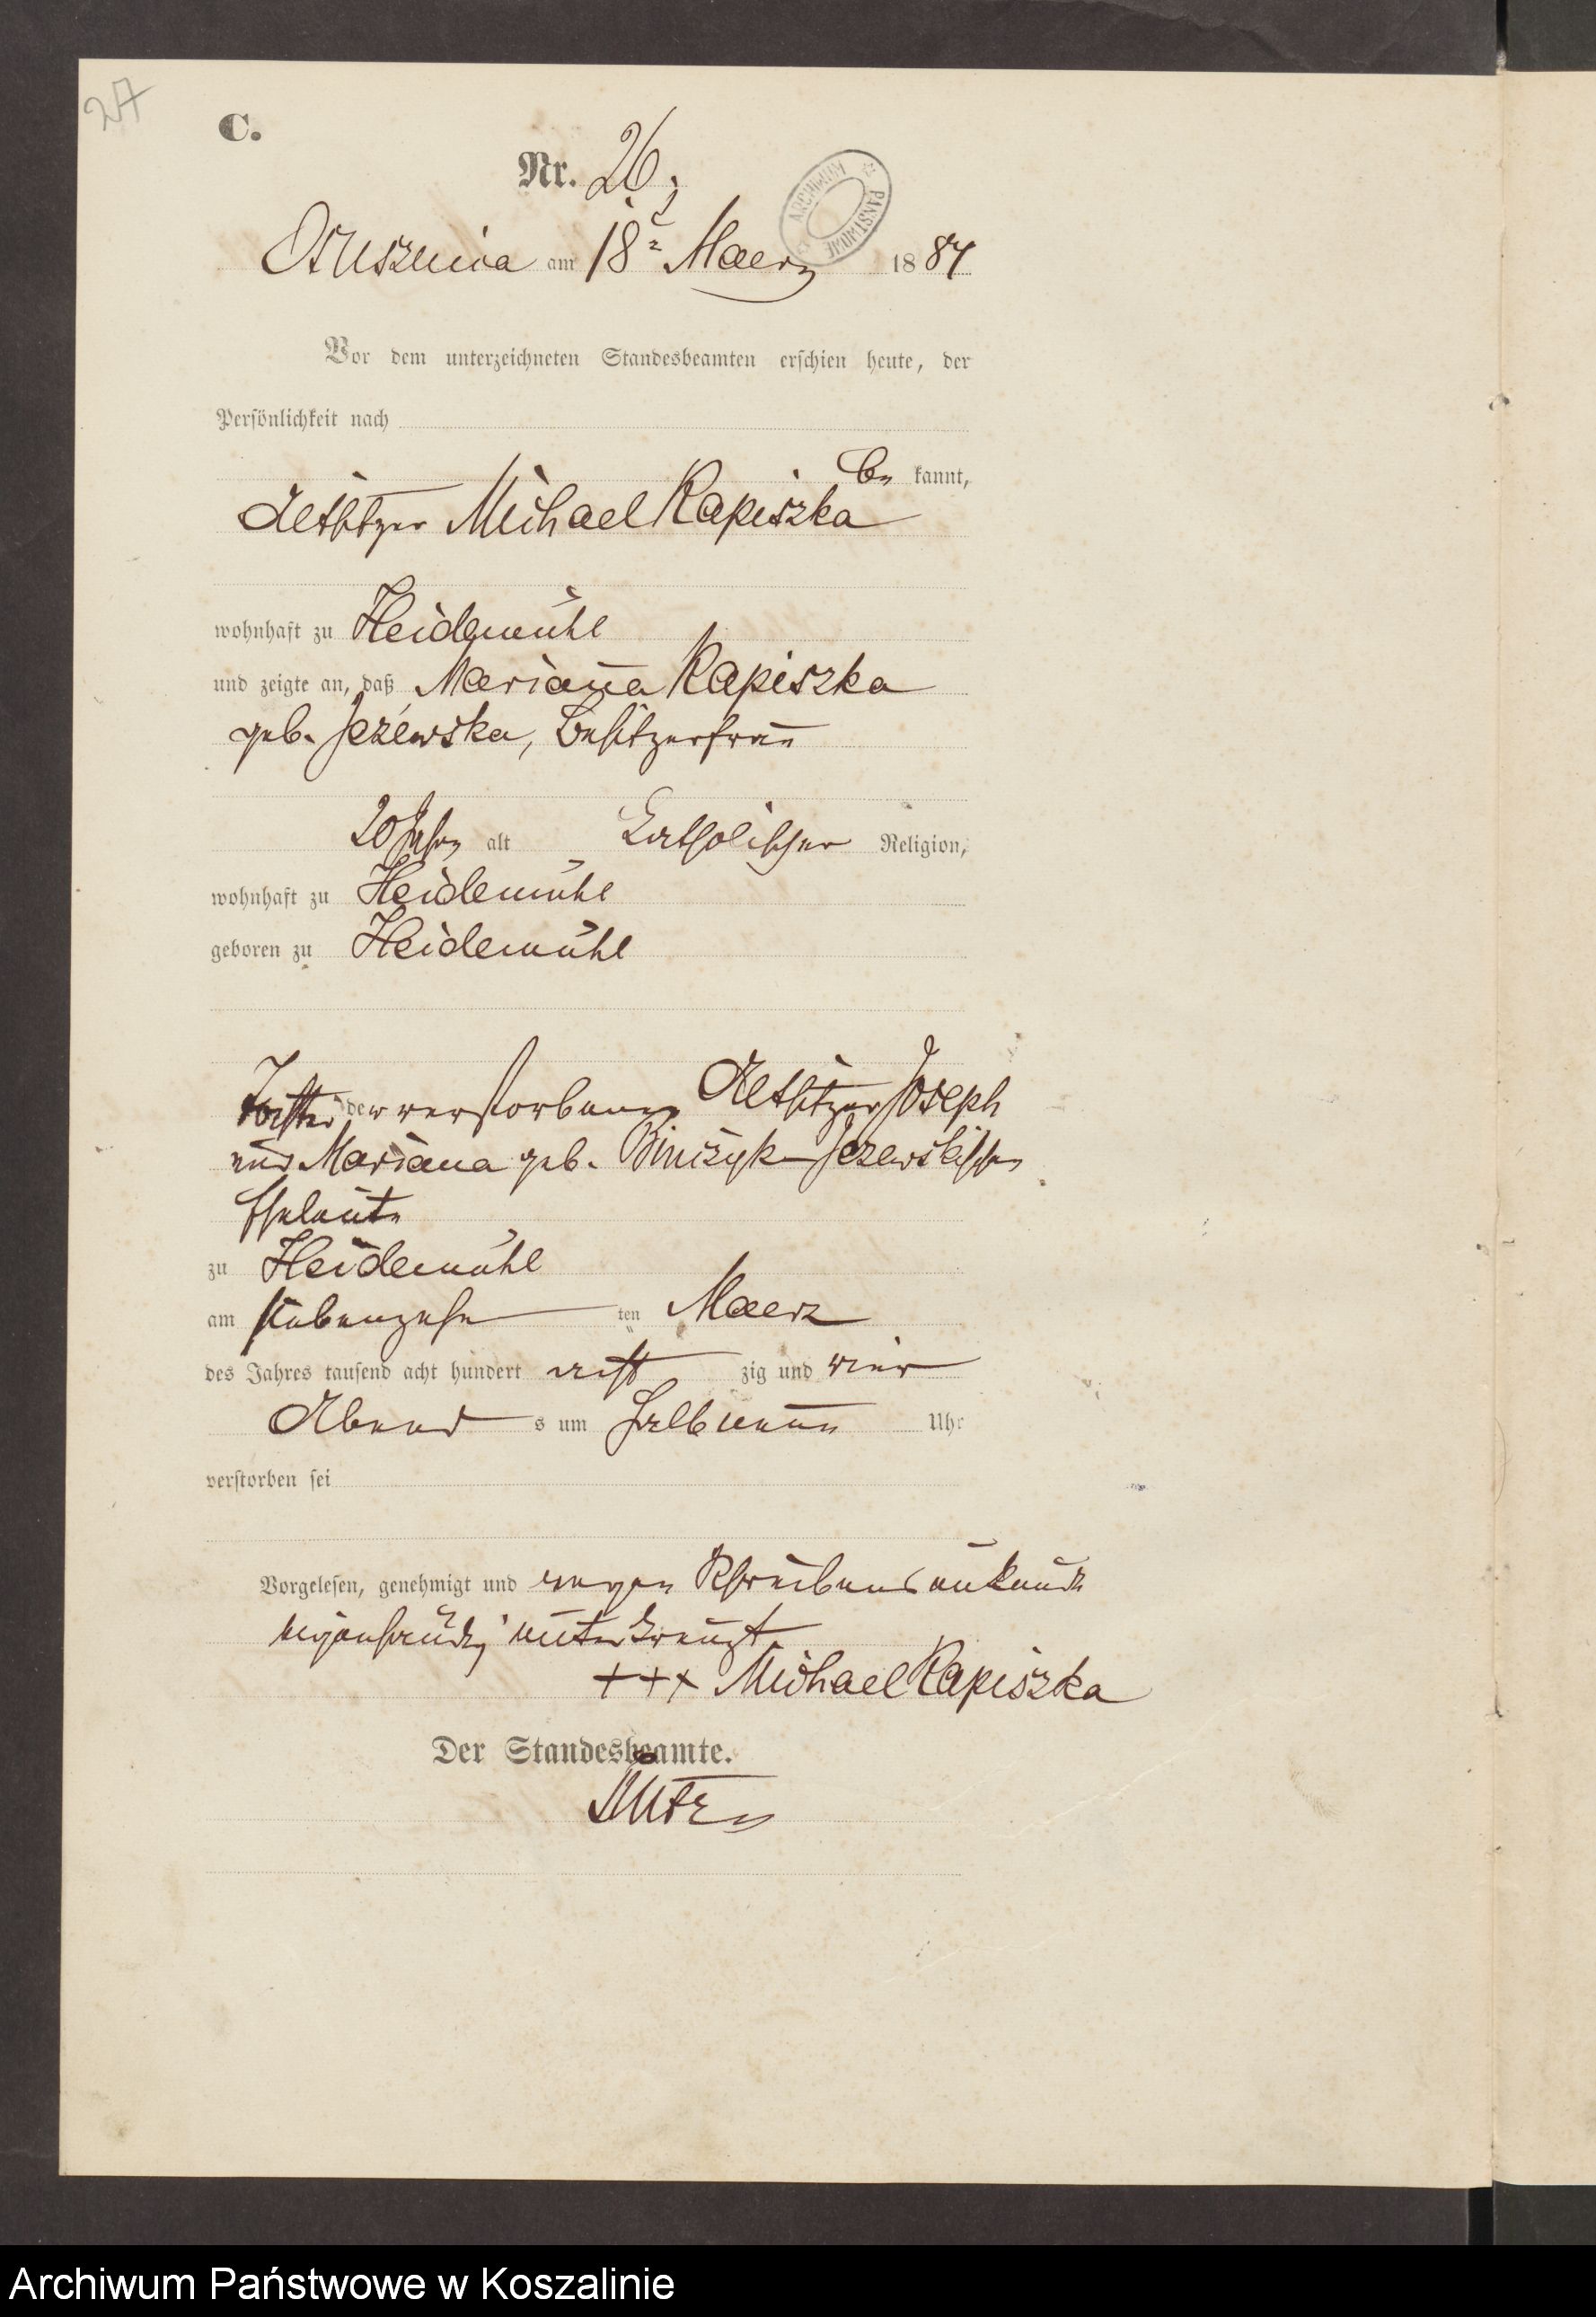 27
C.
Nr. 26.
ARCHIWUM PAŃSTWOWE
Ostuszenica am 18ᵗ Maerz 1884
Vor dem unterzeichneten Standesbeamten erschien heute, der
Persönlichkeit nach
be kannt,
Altsitzer Michael Kapiszka
wohnhaft zu Heidemühl
und zeigte an, daß Mariana Kapiszka
geb. Jezewska, Besitzerfrau
20 Jahre alt Katholischer Religion,
wohnhaft zu Heidemühl
geboren zu Heidemühl
Tochter der verstorbenen Altsitzer Joseph
und Mariana geb. Jezewskischen
Eheleute
zu Heidemühl
am siebenzehn ten Maerz
des Jahres tausend acht hundert acht zig und vier
Abend s um halb neun Uhr
verstorben sei
Vorgelesen, genehmigt und wegen Schreibensunkunde
eigenhändig unterkreuzt
+++ Michael Kapiszka
Der Standesbeamte.
Archiwum Państwowe w Koszalinie